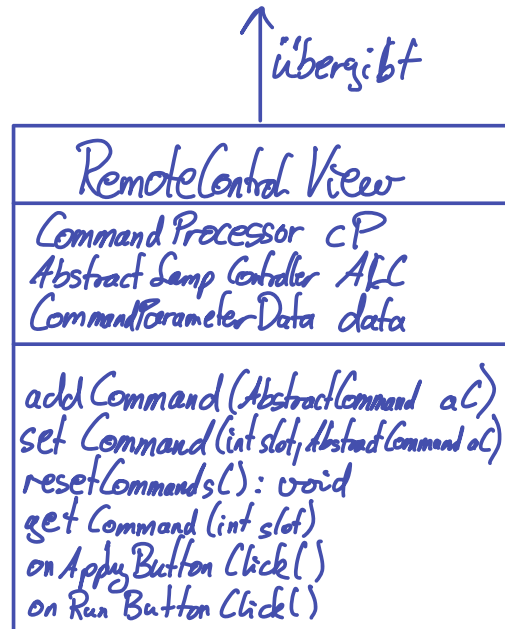 übergibt
RemoteControl View
CommandProcessor cP
Abstract Lamp Controller ALC
CommandParameterData data
addCommand(AbstractCommand aC)
set Command(int slot, AbstractCommand aC)
resetCommands(): void
get Command(int slot)
on Apply Button Click()
on Run Button Click()